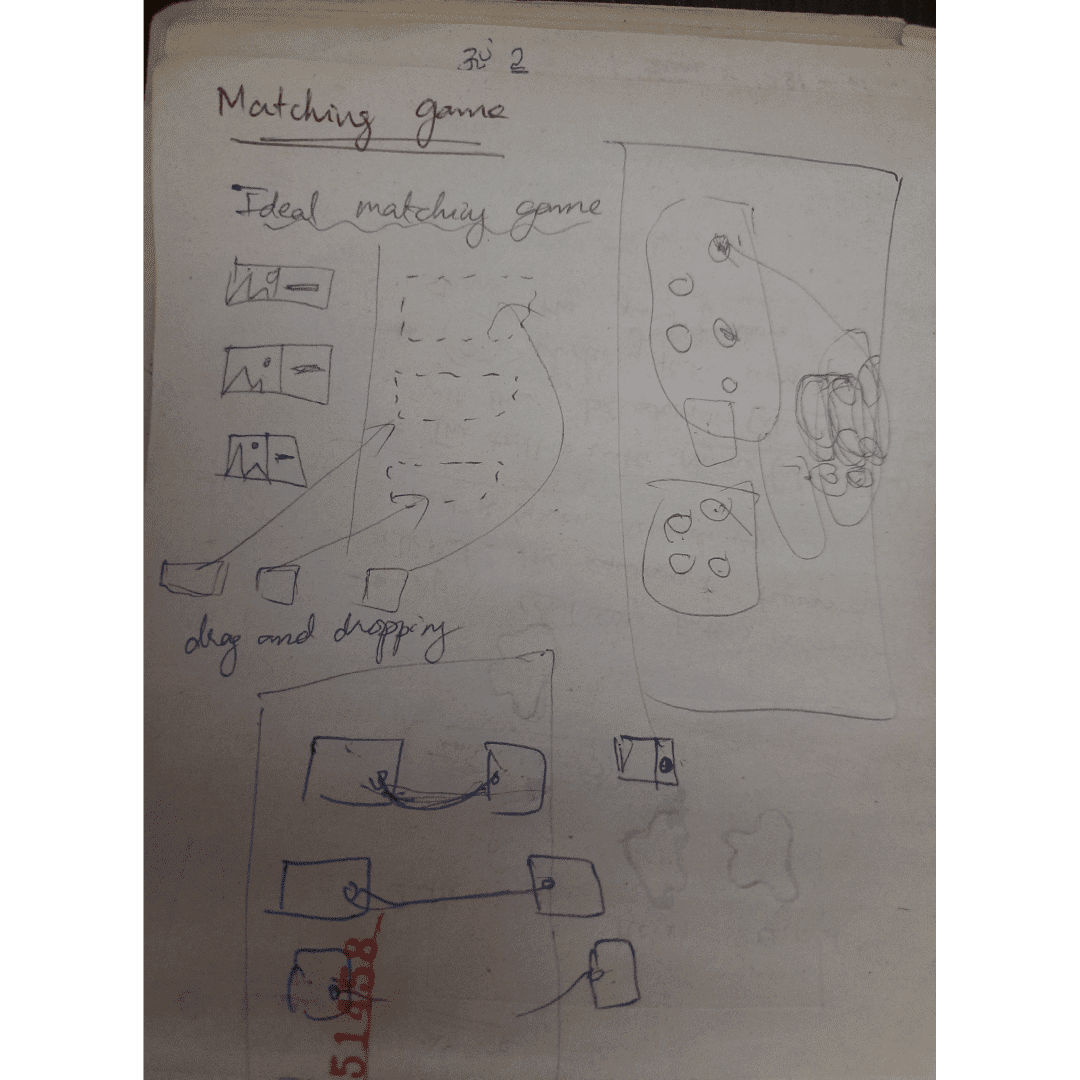 2
Matching game
Ideal matching game
drag and dropping
51458